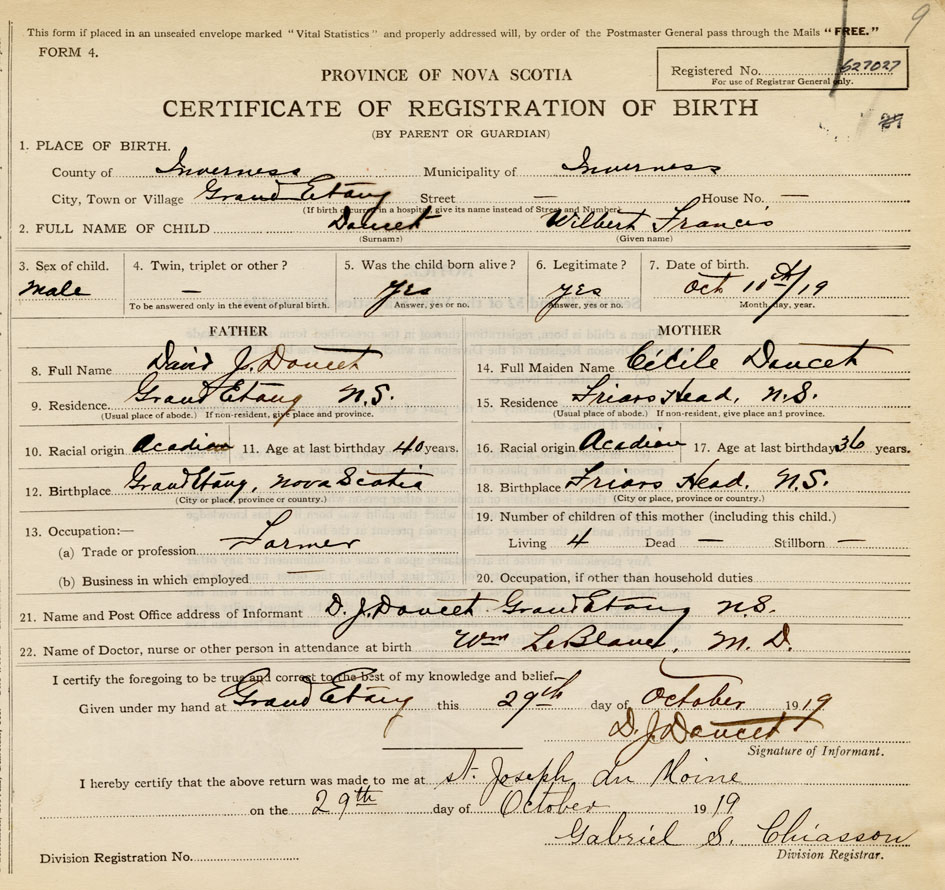 9
This form if placed in an unsealed envelope marked "Vital Statistics" and properly addressed will, by order of the Postmaster General pass through the Mails "FREE."
FORM 4.
PROVINCE OF NOVA SCOTIA
Registered No. 627027
For use of Registrar General only.
CERTIFICATE OF REGISTRATION OF BIRTH
(BY PARENT OR GUARDIAN)
1. PLACE OF BIRTH.
County of Inverness Municipality of Inverness
City, Town or Village Grand Etang Street — House No. —
(If birth occurred in a hospital, give its name instead of Street and Number)
2. FULL NAME OF CHILD Doucet Wilbert Francis
(Surname) (Given name)
3. Sex of child. 4. Twin, triplet or other? 5. Was the child born alive? 6. Legitimate? 7. Date of birth.
male — yes yes Oct 10th/19
To be answered only in the event of plural birth. Answer, yes or no. Answer, yes or no. Month, day, year.
FATHER
8. Full Name David J. Doucet
9. Residence. Grand Etang N.S.
(Usual place of abode.) If non-resident, give place and province.
10. Racial origin Acadian 11. Age at last birthday 40 years.
12. Birthplace Grand Etang, Nova Scotia
(City or place, province or country.)
13. Occupation:—
(a) Trade or profession Farmer
(b) Business in which employed —
MOTHER
14. Full Maiden Name Cécile Doucet
15. Residence Friars Head, N.S.
(Usual place of abode.) If non-resident, give place and province.
16. Racial origin Acadian 17. Age at last birthday 36 years.
18. Birthplace Friars Head, N.S.
(City or place, province or country.)
19. Number of children of this mother (including this child.)
Living 4 Dead — Stillborn —
20. Occupation, if other than household duties
21. Name and Post Office address of Informant D. J. Doucet Grand Etang N.S.
22. Name of Doctor, nurse or other person in attendance at birth Wm LeBlanc, M.D.
I certify the foregoing to be true and correct to the best of my knowledge and belief.
Given under my hand at Grand Etang this 29th day of October 1919
D. J. Doucet
Signature of Informant.
I hereby certify that the above return was made to me at St. Joseph du Moine
on the 29th day of October 1919
Gabriel S. Chiasson
Division Registration No. Division Registrar.